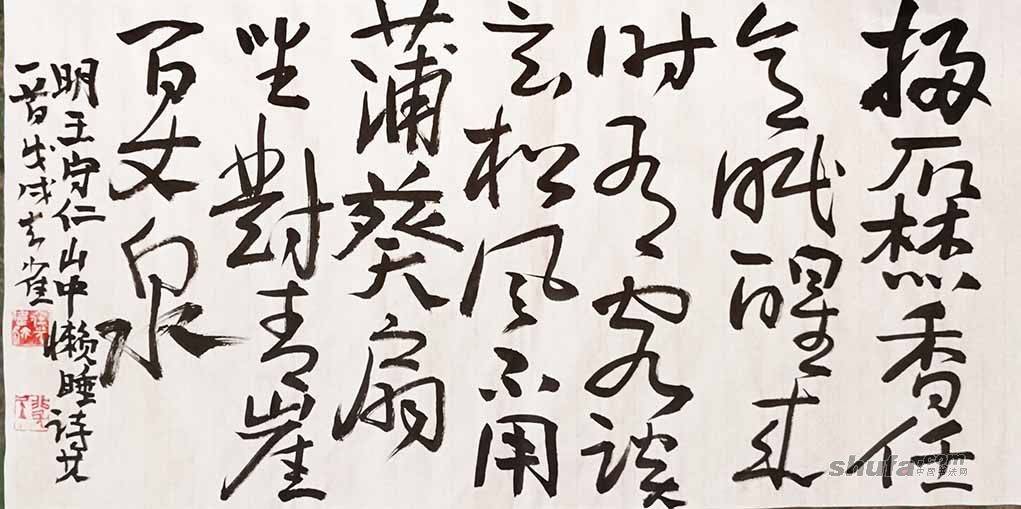 掃石焚香任
意眠醒来
时有客谈
玄松风不用
蒲葵扇
坐對青崖
百丈泉
明王守仁山中懒睡诗其
一首戊戌
shufa.com
中国书法网